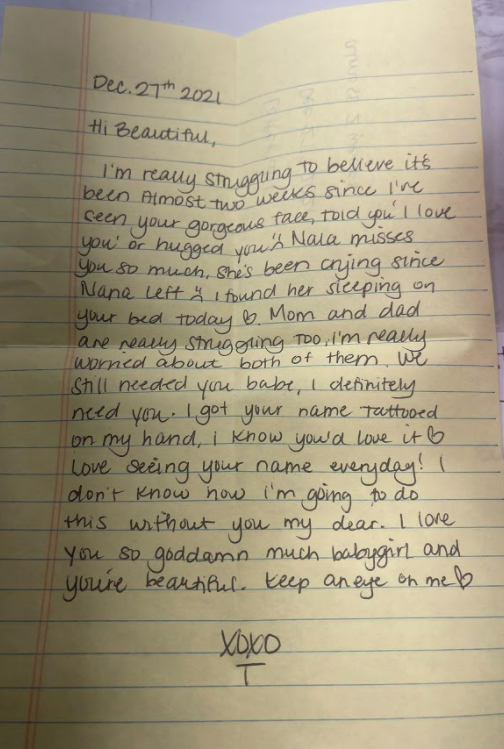 Dec. 27th 2021
Hi Beautiful,
I'm really struggling to believe it's
been Almost two weeks since I've
seen your gorgeous face, told you "I love
you" or hugged you :( Nala misses
you so much, she's been crying since
Nana left :( i found her sleeping on
your bed today ♡. Mom and dad
are really struggling too, i'm really
worried about both of them. We
still needed you babe, i definitely
need you. I got your name tattooed
on my hand, i know you'd love it ♡
Love seeing your name everyday! I
don't know how i'm going to do
this without you my dear. I love
you so goddamn much babygirl and
you're beautiful. Keep an eye on me ♡
XOXO
T